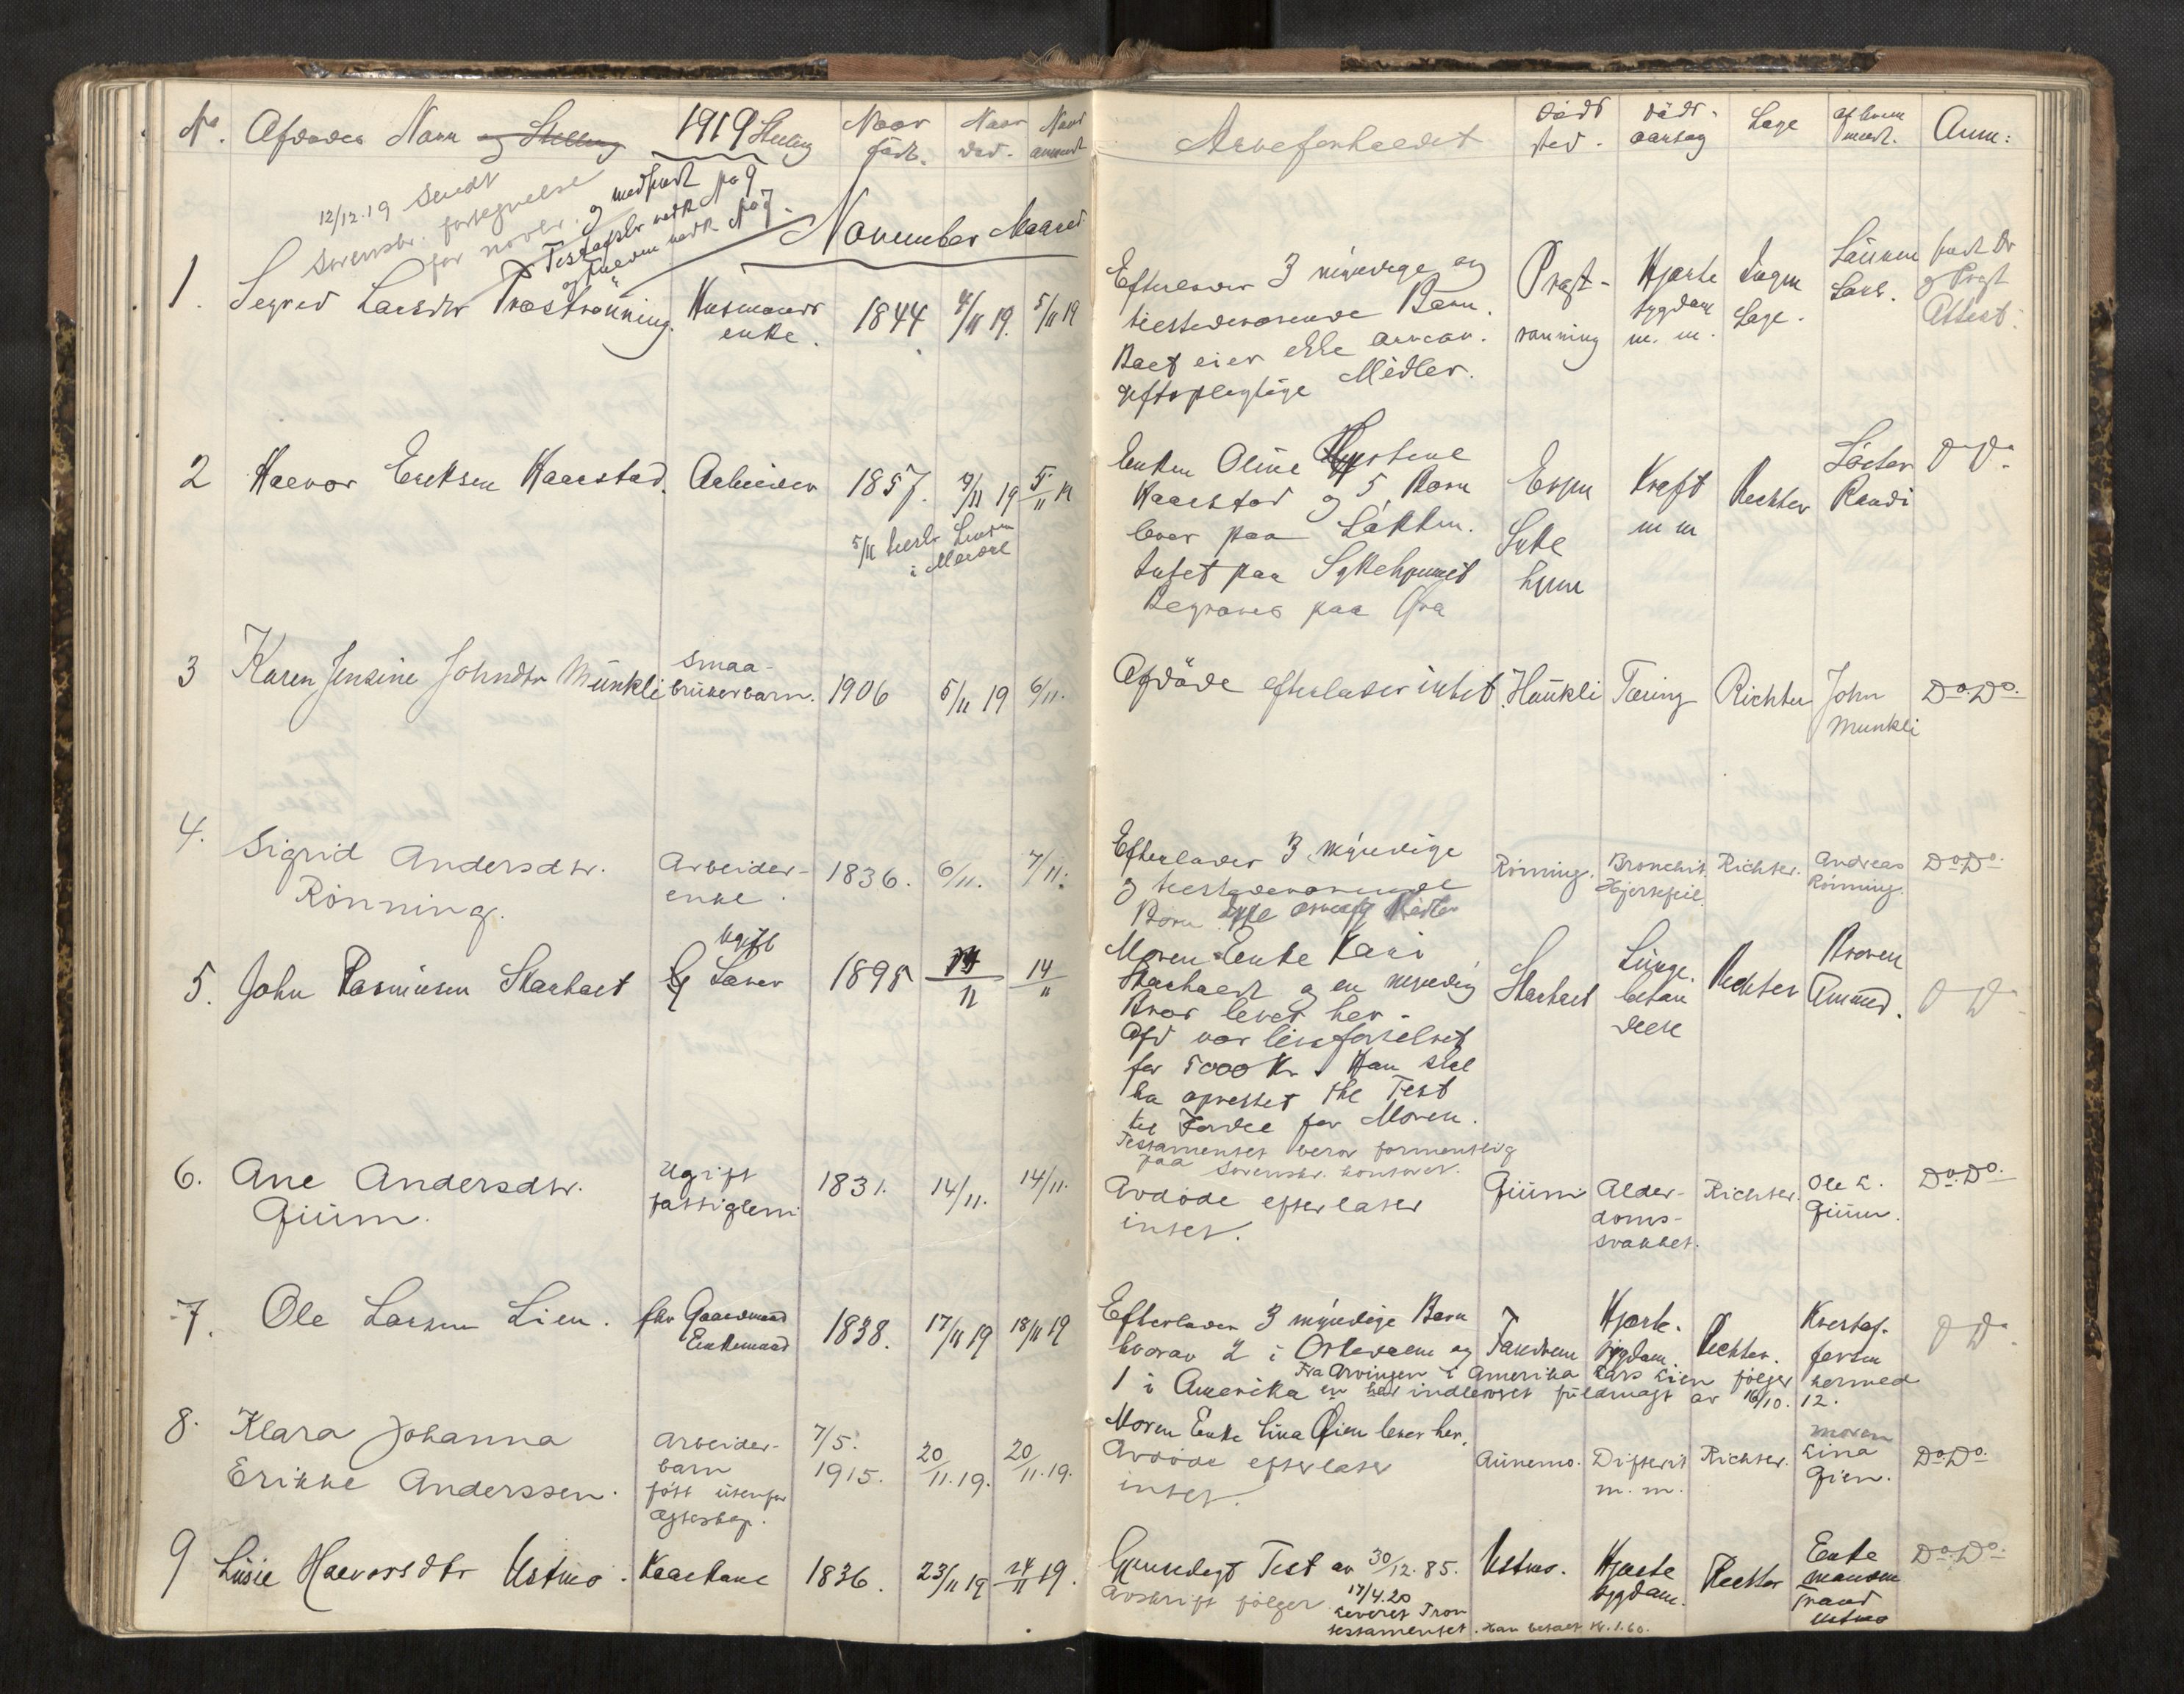 No. Afdødes Navn og Stilling 1919 Stilling Naar født. Naar død. Naar anmeldt Arveforholdet Døds sted. Døds aarsag Læge af hvem meldt. Anm:
12/12.19 Sendt
Sorenskr. fortegnelse
for novbr. og medfulgt
November Maaned
1. Segred Larsdtr Præstrønning. Husmands enke. 1844 4/11 19. 5/11 19
Efterlader 3 myndige og
tilstedeværende Barn.
Boet eier ikke arveav-
giftspligtige Midler.
Præst-
rønning
Hjerte
sygdom
m. m.
Ingen
Læge.
2 Halvor Eriksen Haarstad. Arbeider 1857. 4/11 19 5/11 19
Enken Oline
Haarstad og 5 Børn
lever paa Løkken.
Intet paa Sykehjemmet
Begraves paa
Syke
hjem
Kraft
m m
Richter
Randi
Do Do
3 Karen Jensine Johndtr Munkli Smaa-
brukerbarn. 1906 5/11 19 6/11.
Afdøde efterlader intet. Tæring Richter John
Munkli
Do. Do.
4. Sigrid Andersdtr.
Rønning.
Arbeider-
enke. 1836. 6/11. 7/11.
Efterlader 3 myndige
og tilstedeværende
Børn
Rønning. Bronchit.
Hjertefeil. Richter. Andreas
Rønning. Do Do.
5. John Rasmussen
Ugift
1895 14/11
Moren Enke Kari
og en myndig
Bror lever her.
Afd var livsforsikret
for 5000 Kr. Han skal
ha oprettet Test
til Fordel for Moren.
Testamentet beror formentlig
paa Sorenskr. kontoret.
Lunge
betæn
delse
Richter
Broren
Do Do
6. Ane Andersdtr.
Gjüm.
Ugift
fattiglem 1831. 14/11. 14/11.
Avdøde efterlater
intet.
Gjüm Alder-
doms-
svakhet. Richter. Ole L.
Gjüm. Do. Do.
7. Ole Larsen Lien. fhv Gaardmand
Enkemand 1838. 17/11 19 18/11 19
Efterlader 3 myndige Barn
hvorav 2 i Orkedalen og
1 i Amerika
Fra Arvingen i Amerika Lars Lien følger hermed
en her indleveret fuldmagt av 16/10. 12.
Hjerte-
sygdom. Richter. Kristof-
fersen
Do
8. Klara Johanna
Erikke Anderssen.
Arbeider-
barn
født utenfor
Ægteskap.
7/5.
1915. 20/11.19. 20/11.19.
Moren Enke Lina Øien lever her.
Avdøde efterlater
intet.
Aunemo. Difterit
m. m. Richter. Moren
Lina
Øien. Do. Do.
9 Lusie Halvorsdtr Ustmo. Kaarkone 1836. 23/11 19 24/11 19.
Gjensidigt Test av 30/12.85.
Avskrift følger 17/4.20
leveret Tron
testamentet. Han betalt kr. 1.60.
Ustmo. Hjerte
sygdom. Richter Enke
manden
Trond
Ustmo
Do. Do.